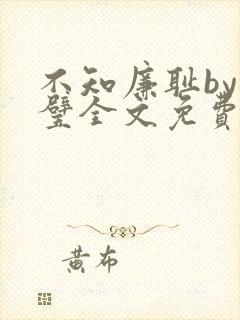 不知廉耻by
璧全文免費
黃布